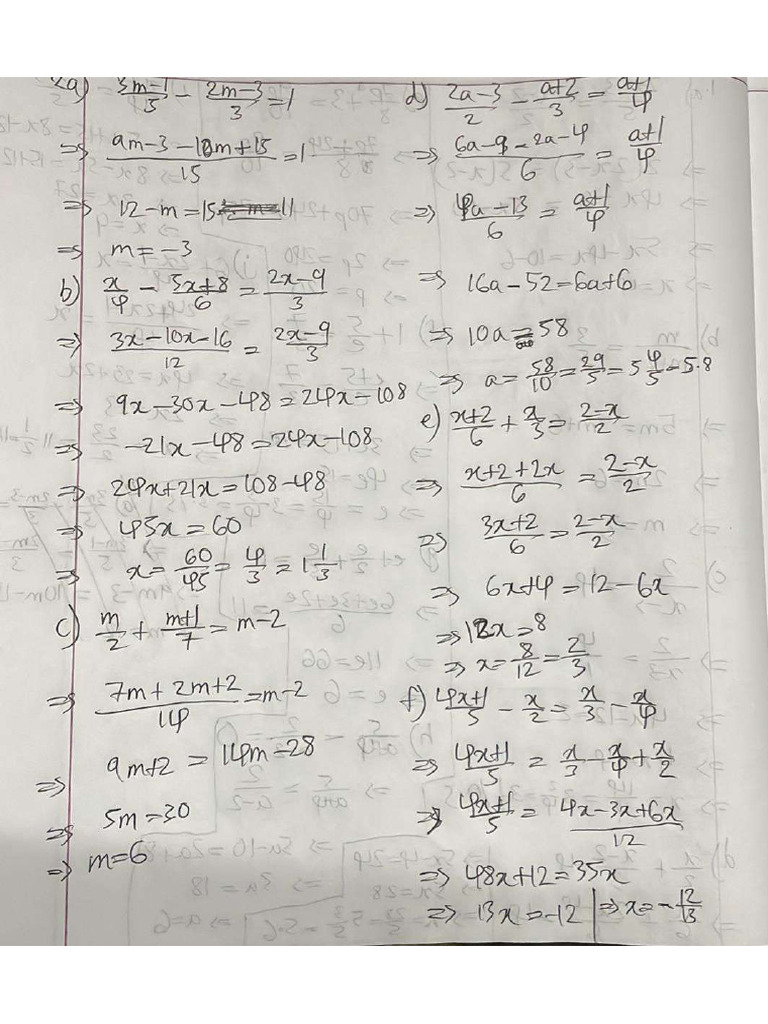 2a) (3m-1)/5 - (2m-3)/3 = 1
⇒ (9m-3-10m+15)/15 = 1
⇒ 12-m = 15
⇒ m = -3
b) x/4 - (5x+8)/6 = (2x-9)/3
⇒ (3x-10x-16)/12 = (2x-9)/3
⇒ 9x-30x-48 = 24x-108
⇒ -21x-48 = 24x-108
⇒ 24x+21x = 108-48
⇒ 45x = 60
⇒ x = 60/45 = 4/3 = 1 1/3
c) m/2 + (m+1)/7 = m-2
⇒ (7m+2m+2)/14 = m-2
⇒ 9m+2 = 14m-28
⇒ 5m = 30
⇒ m = 6
d) (2a-3)/2 - (a+2)/3 = (a+1)/4
⇒ (6a-9-2a-4)/6 = (a+1)/4
⇒ (4a-13)/6 = (a+1)/4
⇒ 16a-52 = 6a+6
⇒ 10a = 58
⇒ a = 58/10 = 29/5 = 5 4/5 = 5.8
e) (x+2)/6 + x/3 = (2-x)/2
⇒ (x+2+2x)/6 = (2-x)/2
⇒ (3x+2)/6 = (2-x)/2
⇒ 6x+4 = 12-6x
⇒ 12x = 8
⇒ x = 8/12 = 2/3
f) (4x+1)/5 - x/2 = x/3 - x/4
⇒ (4x+1)/5 = x/3 - x/4 + x/2
⇒ (4x+1)/5 = (4x-3x+6x)/12
⇒ 48x+12 = 35x
⇒ 13x = -12 | ⇒ x = -12/13